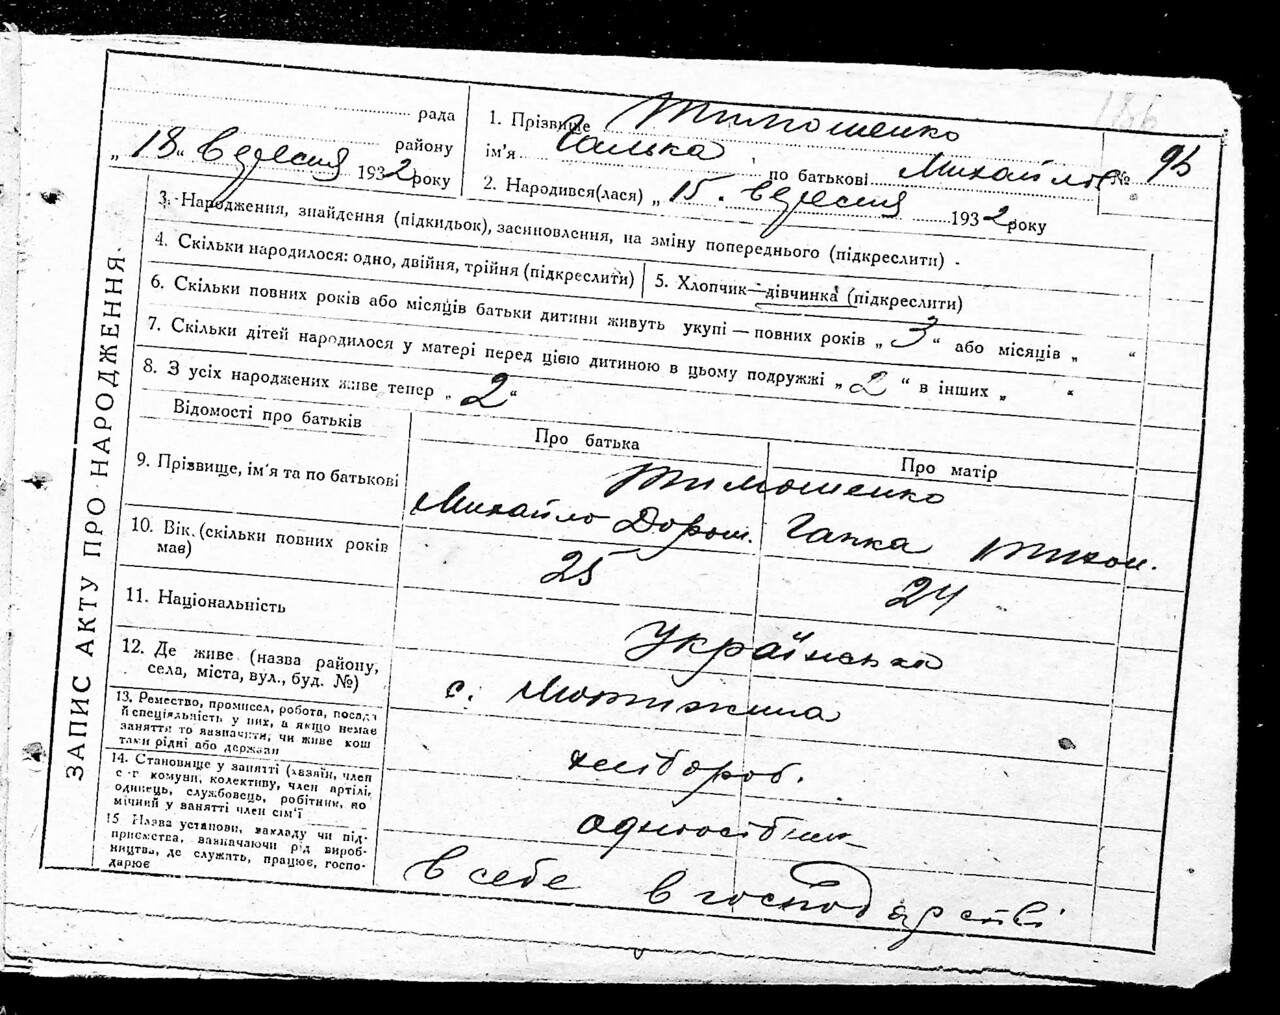 186
рада
району
„ 18 “ вересня 1932 року
1. Прізвище Тимошенко
ім'я Галька, по батькові Михайлов № 95
2. Народився(лася) „ 15. вересня 1932 року
3. Народження, знайдення (підкидьок), засиновлення, на зміну попереднього (підкреслити) -
4. Скільки народилося: одно, двійня, трійня (підкреслити)
5. Хлопчик—дівчинка (підкреслити)
6. Скільки повних років або місяців батьки дитини живуть укупі — повних років „ 3 “ або місяців „ “
7. Скільки дітей народилося у матері перед цією дитиною в цьому подружжі „ 2 “ в інших „ “
8. З усіх народжених живе тепер „ 2 “
ЗАПИС АКТУ ПРО НАРОДЖЕННЯ.
Відомості про батьків
Про батька
Про матір
9. Прізвище, ім'я та по батькові
Тимошенко
Михайло Дорош. Ганка Тихон.
10. Вік. (скільки повних років
мав)
25 24
11. Національність
Українська
12. Де живе (назва району,
села, міста, вул., буд. №)
с. Мотижина
13. Ремество, промисел, робота, посада
й спеціяльність у них, а якщо немає
заняття то вазначити, чи живе кош
таки рідні або держави
хлібороб.
14. Становище у занятті (хазяїн, член
с-г комуни, колективу, член артілі,
одинець, службовець, робітник, по
мічний у занятті член сім'ї
одноосібник
15 Назва установи, закладу чи під-
приємства, вазначаючи рід вироб-
ництва, де служать, працює, госпо-
дарює
в себе в господарстві